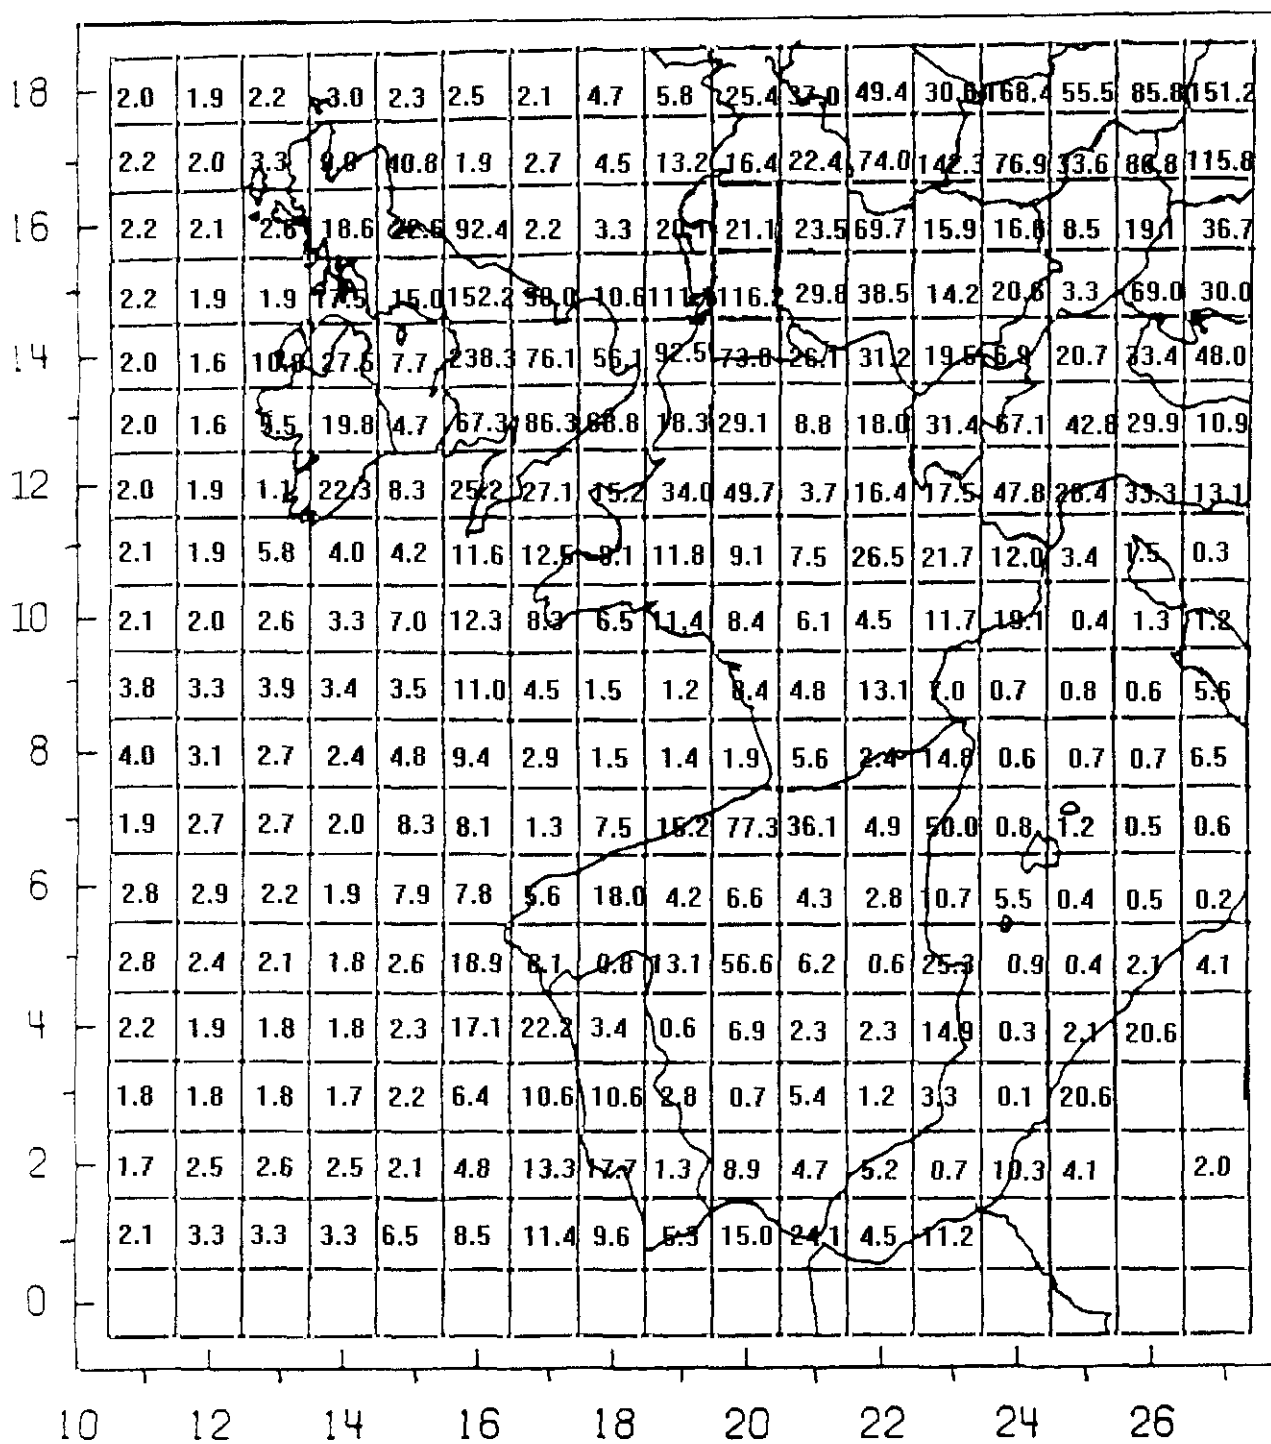 18 2.0 1.9 2.2 3.0 2.3 2.5 2.1 4.7 5.8 25.4 37.0 49.4 30.6 168.4 55.5 85.8 151.2
2.2 2.0 3.3 40.8 1.9 2.7 4.5 13.2 16.4 22.4 74.0 142.3 76.9 33.6 115.8
16 2.2 2.1 18.6 22.6 92.4 2.2 3.3 20.1 21.1 23.5 69.7 15.9 16.8 8.5 19.1 36.7
2.2 1.9 1.9 17.5 15.0 152.2 10.6 116.2 29.8 38.5 14.2 20.6 3.3 69.0 30.0
14 2.0 1.6 10.8 27.5 7.7 238.3 76.1 56.1 92.5 73.8 26.1 31.2 19.5 6.9 20.7 33.4 48.0
2.0 1.6 19.8 4.7 67.3 86.3 68.8 18.3 29.1 8.8 18.0 31.4 67.1 42.8 29.9 10.9
12 2.0 1.9 1.1 22.3 8.3 25.2 27.1 15.2 34.0 49.7 3.7 16.4 17.5 47.8 26.4 33.3 13.1
2.1 1.9 5.8 4.0 4.2 11.6 12.5 8.1 11.8 9.1 7.5 26.5 21.7 12.0 3.4 1.5 0.3
10 2.1 2.0 2.6 3.3 7.0 12.3 8.3 6.5 11.4 8.4 6.1 4.5 11.7 19.1 0.4 1.3 1.2
3.8 3.3 3.9 3.4 3.5 11.0 4.5 1.5 1.2 8.4 4.8 13.1 7.0 0.7 0.8 0.6 5.6
8 4.0 3.1 2.7 2.4 4.8 9.4 2.9 1.5 1.4 1.9 5.6 2.4 14.8 0.6 0.7 0.7 6.5
1.9 2.7 2.7 2.0 8.3 8.1 1.3 7.5 15.2 77.3 36.1 4.9 50.0 0.8 1.2 0.5 0.6
6 2.8 2.9 2.2 1.9 7.9 7.8 5.6 18.0 4.2 6.6 4.3 2.8 10.7 5.5 0.4 0.5 0.2
2.8 2.4 2.1 1.8 2.6 18.9 8.1 0.8 13.1 56.6 6.2 0.6 25.3 0.9 0.4 2.1 4.1
4 2.2 1.9 1.8 1.8 2.3 17.1 22.2 3.4 0.6 6.9 2.3 2.3 14.9 0.3 2.1 20.6
1.8 1.8 1.8 1.7 2.2 6.4 10.6 10.6 2.8 0.7 5.4 1.2 3.3 0.1 20.6
2 1.7 2.5 2.6 2.5 2.1 4.8 13.3 17.7 1.3 8.9 4.7 5.2 0.7 10.3 4.1 2.0
2.1 3.3 3.3 3.3 6.5 8.5 11.4 9.6 5.3 15.0 24.1 4.5 11.2
0
10 12 14 16 18 20 22 24 26